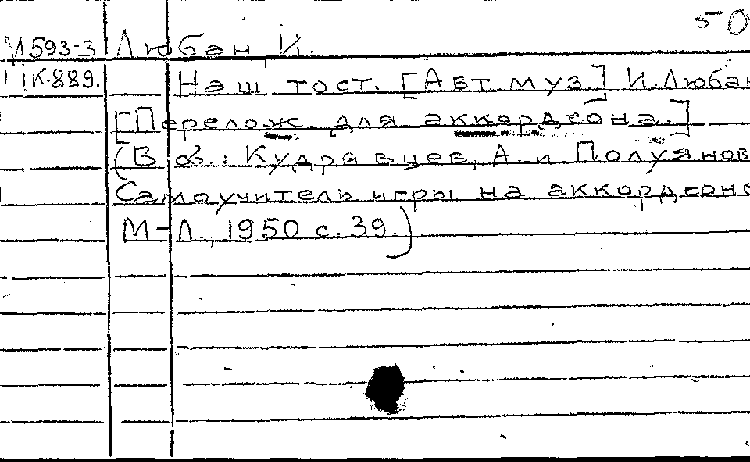 50
М593-3 Любан, И.
К-889. Наш тост. [Авт. муз.] И. Любан
[Перелож. для аккордеона.]
(В сб.: Кудрявцев, А. и Полуянов
Самоучитель игры на аккордеоне
М-Л., 1950 с. 39.)